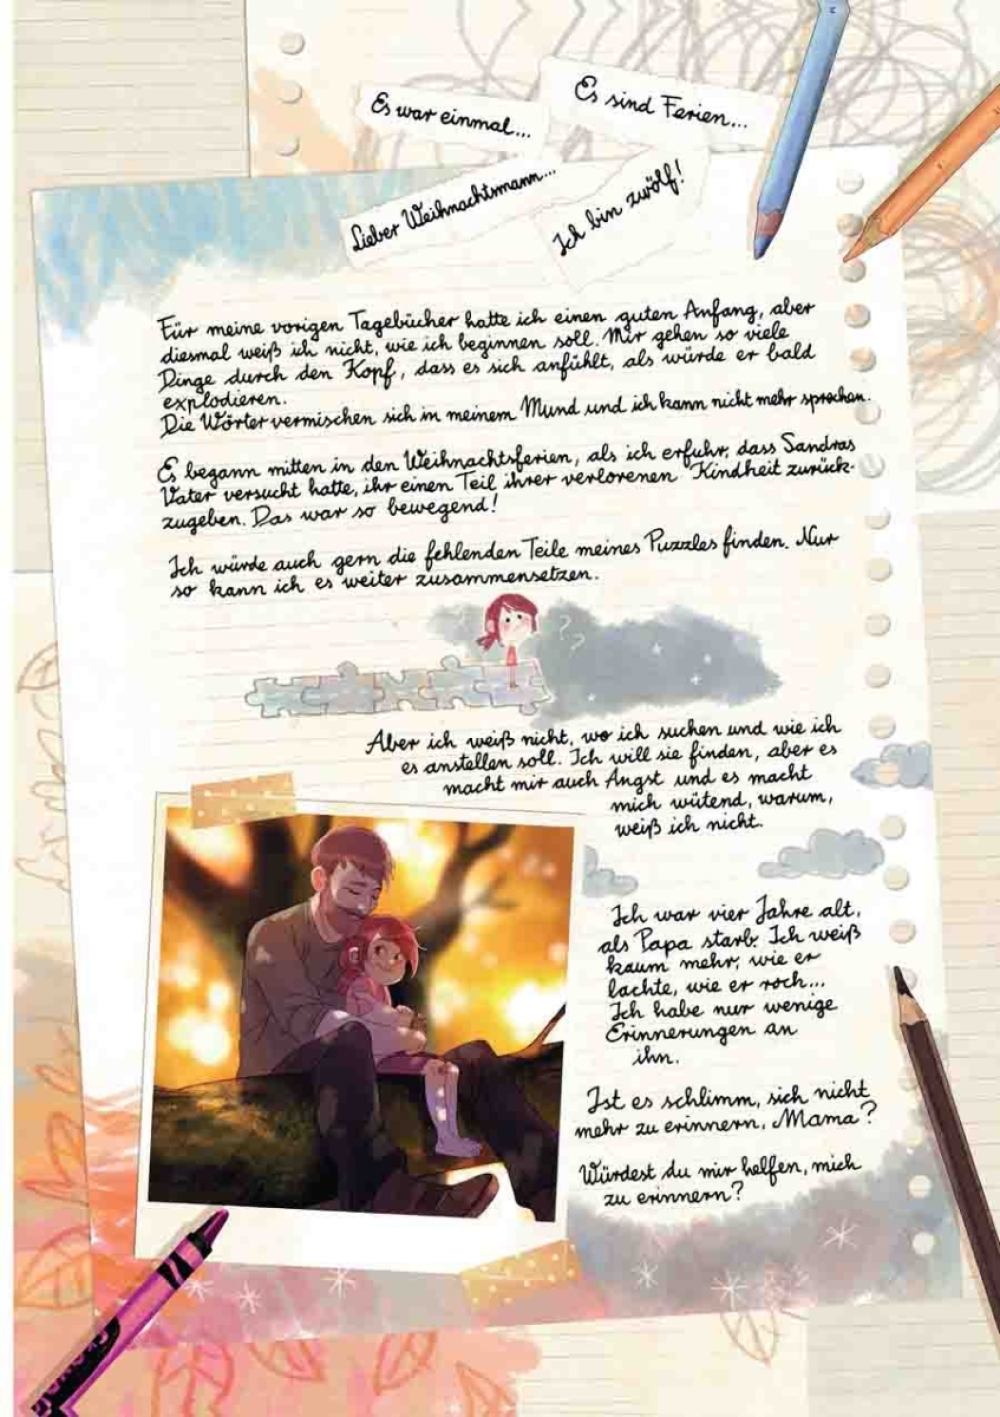 Es war einmal...
Es sind Ferien...
Lieber Weihnachtsmann...
Ich bin zwölf!
Für meine vorigen Tagebücher hatte ich einen guten Anfang, aber
diesmal weiß ich nicht, wie ich beginnen soll. Mir gehen so viele
Dinge durch den Kopf, dass es sich anfühlt, als würde er bald
explodieren.
Die Wörter vermischen sich in meinem Mund und ich kann nicht mehr sprechen.
Es begann mitten in den Weihnachtsferien, als ich erfuhr, dass Sandras
Vater versucht hatte, ihr einen Teil ihrer verlorenen Kindheit zurück-
zugeben. Das war so bewegend!
Ich würde auch gern die fehlenden Teile meines Puzzles finden. Nur
so kann ich es weiter zusammensetzen.
? ?
Aber ich weiß nicht, wo ich suchen und wie ich
es anstellen soll. Ich will sie finden, aber es
macht mir auch Angst und es macht
mich wütend, warum,
weiß ich nicht.
Ich war vier Jahre alt,
als Papa starb. Ich weiß
kaum mehr, wie er
lachte, wie er roch...
Ich habe nur wenige
Erinnerungen an
ihn.
Ist es schlimm, sich nicht
mehr zu erinnern, Mama?
Würdest du mir helfen, mich
zu erinnern?